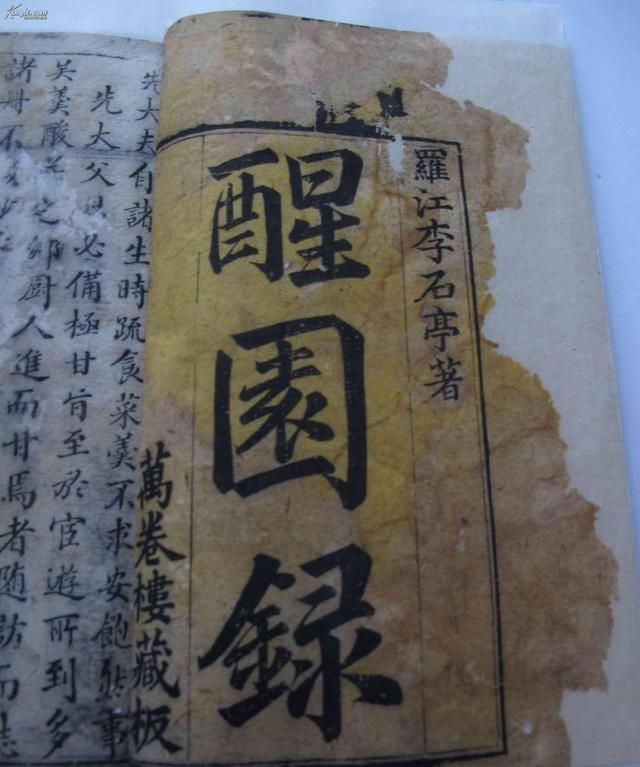 羅江李石亭著
醒園録
萬卷樓藏板
先大夫自諸生時疏食菜羹不求安飽然事
先大父母必備極甘旨至於宦遊所到多
吴羹酸苦之鄉厨人進而甘焉者随訪而誌
諸册不
Kongfz.com